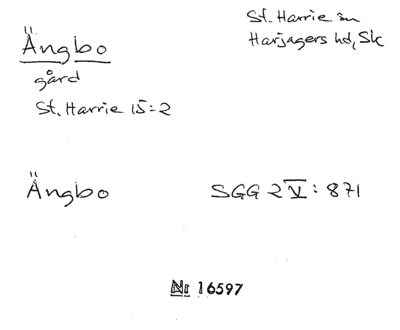 Ängbo
gård
St. Harrie 15:2
St. Harrie sn
Harjagers hd, Sk
Ängbo
SGG 2 V: 871
Nr 16597